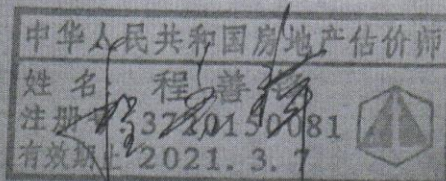 中华人民共和国房地产估价师
姓名：程善
注册号:3220150081
有效期止2021.3.7